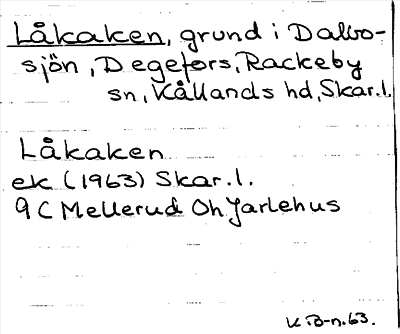 Låkaken, grund i Dalbo-
sjön, Degefors, Rackeby
sn, Kållands hd, Skar.l.
Låkaken
ek (1963) Skar.l.
9C Mellerud Oh Jarlehus
K.B-n.63.